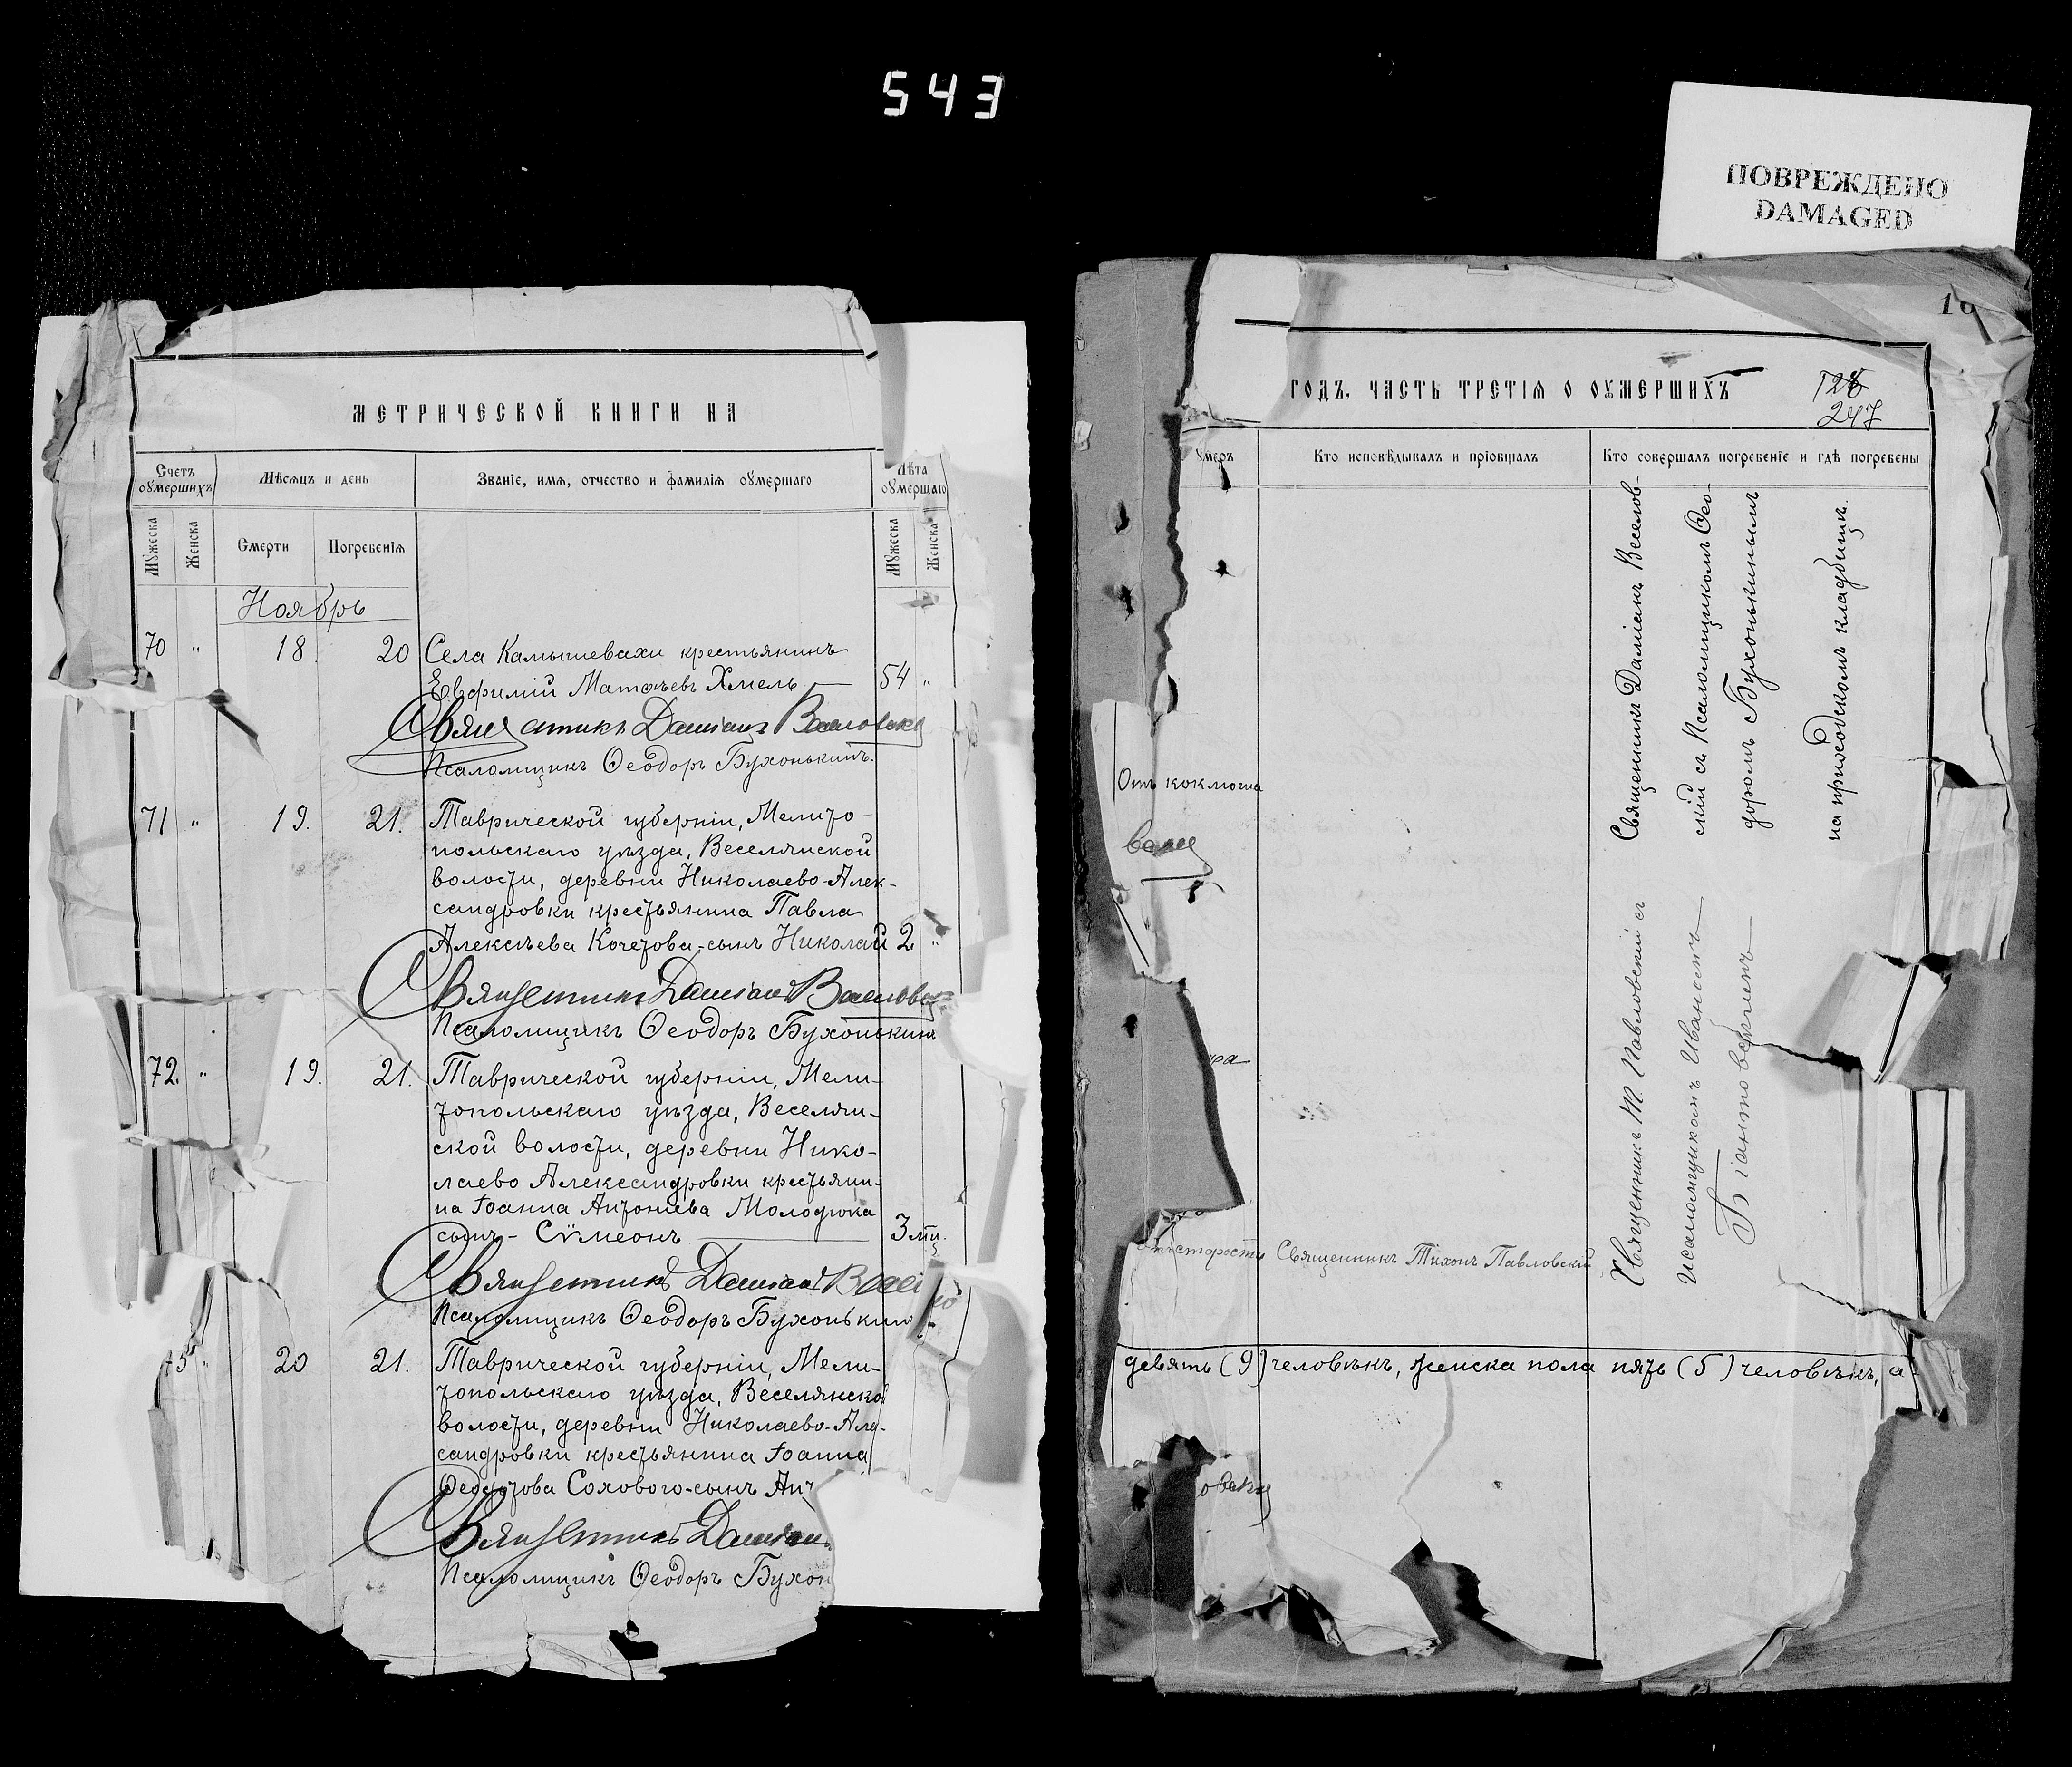 543
ПОВРЕЖДЕНО
DAMAGED
МЕТРИЧЕСКОЙ КНИГИ НА
Счетъ оумершихъ
Мѣсяцъ и день
Званіе, имя, отчество и фамилія оумершаго
Лѣта оумершаго
Мужеска
Женска
Смерти
Погребенія
Мужеска
Женска
Ноябрь
70 " 18. 20 Села Камышевахи крестьянинъ
Евфимій Матѳѣевъ Хмель 54 "
Священникъ Даміанъ Веселовскій
Псаломщикъ Ѳеодоръ Бухонькинъ.
71 " 19. 21. Таврической губерніи, Мелито-
польскаго уѣзда, Веселянской
волости, деревни Николаево-Алек-
сандровки крестьянина Павла
Алексѣева Кочетова-сынъ Николай 2 "
Священникъ Даміанъ Веселовск
Псаломщикъ Ѳеодоръ Бухонькинъ
72. " 19. 21. Таврической губерніи, Мели-
топольскаго уѣзда, Веселян-
ской волости, деревни Нико-
лаево Александровки крестьяни-
на Іоанна Антоніева Молодыка
сынъ - Сѵмеонъ 3 мц.
Священникъ Даміанъ Весе
Псаломщикъ Ѳеодоръ Бухонькин
" 20 21. Таврической губерніи, Мели-
топольскаго уѣзда, Веселянско
волости, деревни Николаево-Але-
сандровки крестьянина Іоанна
Ѳедотова Сохового-сынъ Ант
Священникъ Даміан
Псаломщикъ Ѳеодоръ Бухон
16
ГОДЪ, ЧАСТЬ ТРЕТІЯ О ОУМЕРШИХЪ
247
умеръ
Кто исповѣдывалъ и пріобщалъ
Кто совершалъ погребеніе и гдѣ погребены
Священникъ Даміанъ Веселов-
скій съ Псаломщикомъ Ѳео-
доромъ Бухонькинымъ
на приходскомъ кладбищѣ.
Отъ коклюша
Священникъ Т. Павловскій съ
Псаломщикомъ Иваномъ
отъ старости Священникъ Тихонъ Павловскій
девять (9) человѣкъ, женска пола пять (5) человѣкъ, а